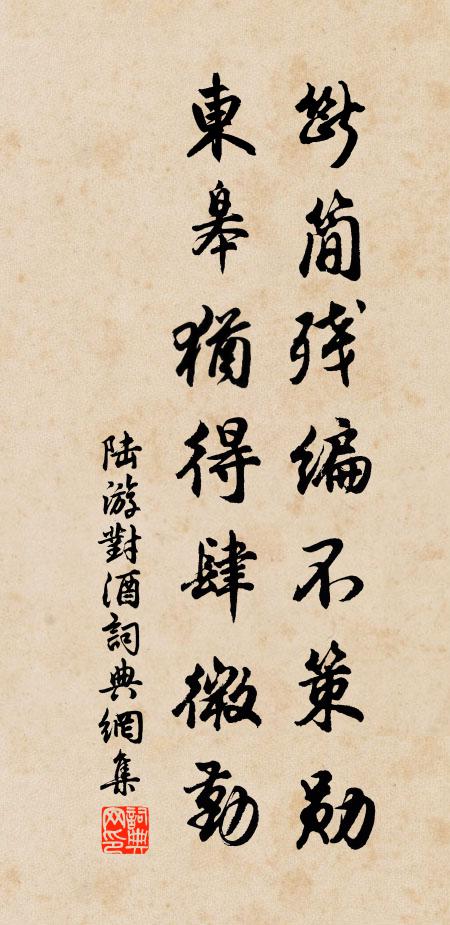 斷简残编不策勋
東皋猶得肆微勤
陆游對酒詞典網集
詞典网印